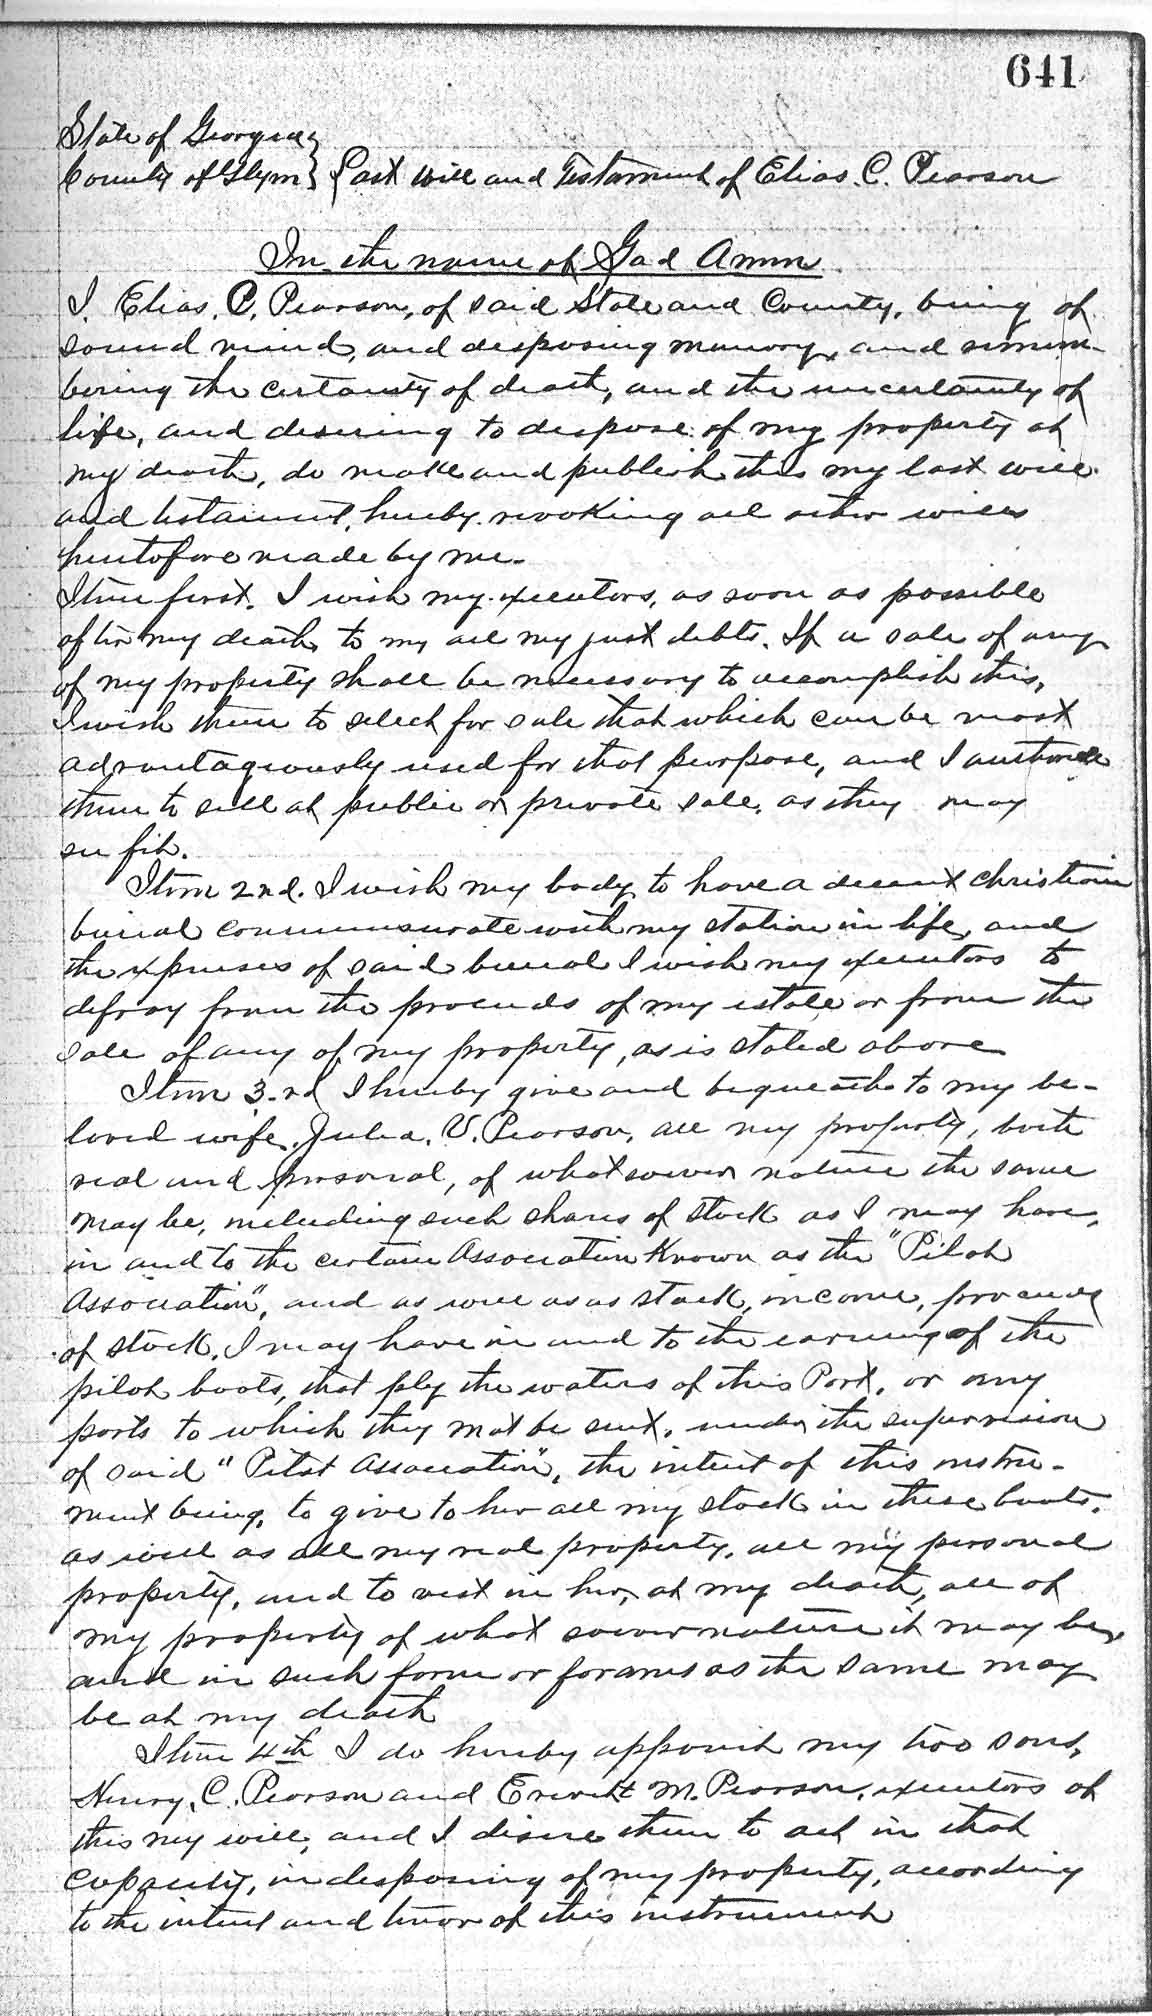 641
State of Georgia }
County of Glynn } Last Will and Testament of Elias. C. Pearson
In the name of God Amen
I. Elias. C. Pearson, of said State and County, being of
sound mind, and disposing memory, and remem-
bering the certainty of death, and the uncertainty of
life, and desiring to dispose of my property at
my death, do make and publish this my last will
and testament, hereby revoking all other wills
heretofore made by me.
Item first. I wish my executors, as soon as possible
after my death, to my all my just debts. If a sale of any
of my property shall be necessary to accomplish this,
I wish them to select for sale that which can be most
advantageously used for that purpose, and I authorize
them to sell at public or private sale, as they may
see fit.
Item 2nd. I wish my body to have a decent christian
burial commensurate with my station in life, and
the expenses of said burial I wish my executors to
defray from the proceeds of my estate or from the
sale of any of my property, as is stated above
Item 3.rd I hereby give and bequeath to my be-
loved wife, Julia. V. Pearson, all my property, both
real and personal, of whatsoever nature the same
may be, including such shares of stock as I may have,
in and to the certain Association Known as the "Pilot
Association", and as well as as stock, income, proceeds
of stock, I may have in and to the earning of the
pilot boats, that ply the waters of this Port, or any
ports to which they mat be sent, under the supervision
of said "Pilot Association", the intent of this instru-
ment being, to give to her all my stock in these boats,
as well as all my real property, all my personal
property, and to vest in her, at my death, all of
my property of what soever nature it may be,
and in such form or forams as the same may
be at my death
Item 4th I do hereby appoint my two sons,
Henry, C. Pearson and Everett M. Pearson, executors of
this my will, and I desire them to act in that
capacity, in disposing of my property, according
to the intent and tenor of this instrument